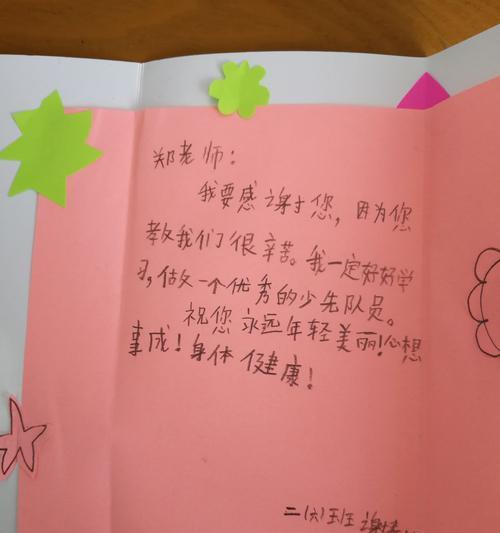 郑老师：
我要感谢于您，因为您
教我们了很辛苦。我一定好好学
习，做一个优秀的少先队员。
祝您永远年轻美丽！心想
事成！身体健康！
二(六)班 谢